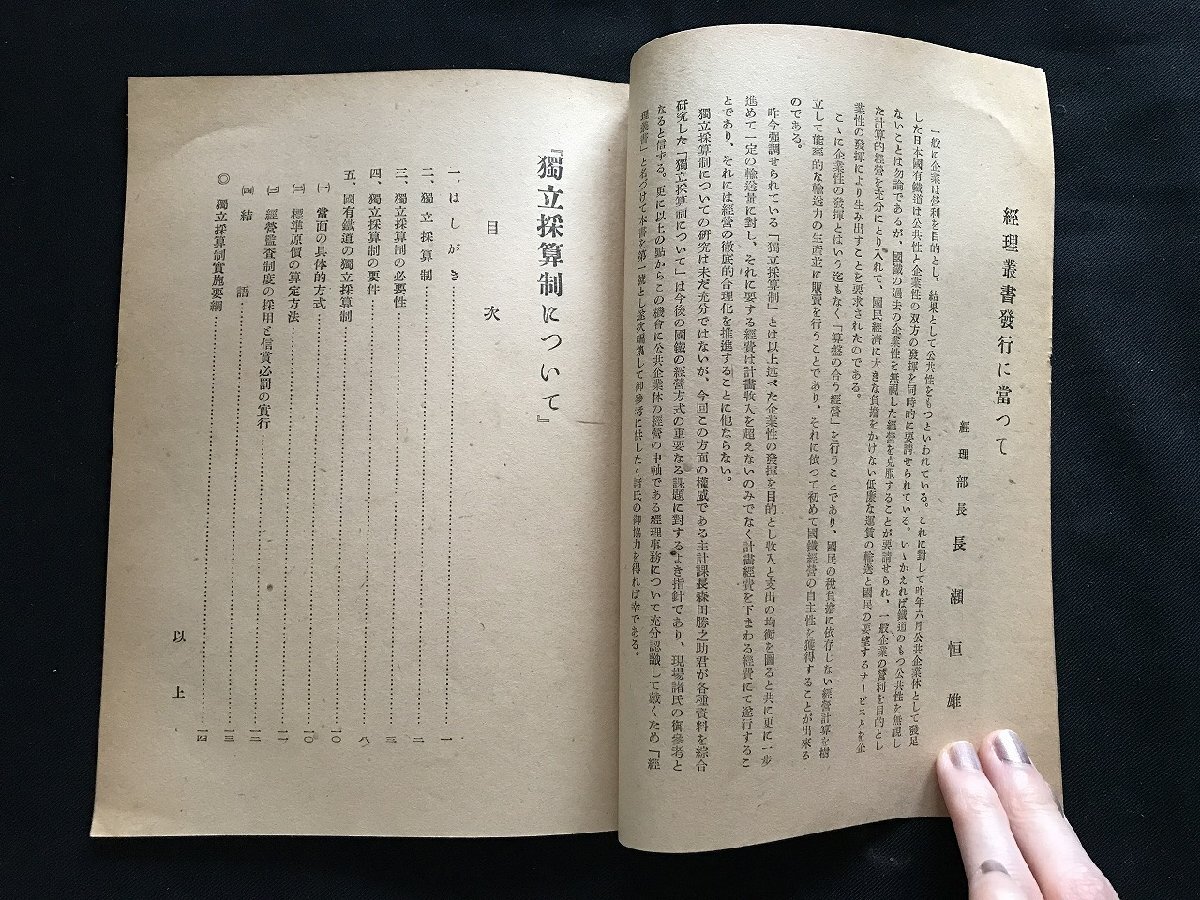 經理叢書發行に當つて
經理部長 長瀨恒雄
一般に企業は營利を目的とし、結果として公共性をもつといわれている。これに對して昨年六月公共企業体として發足
した日本國有鐵道は公共性と企業性の双方の發揮を同時的に要請せられている。いゝかえれば鐵道のもつ公共性を無視し
ないことは勿論であるが、國鐵の過去の企業性を無視した經營を克服することが要請せられ、一般企業の營利を目的とし
た計算的經營を充分にとり入れて、國民經濟に大きな負擔をかけない低廉な運賃の輸送と國民の要望するサービスとを企
業性の發揮により生み出すことを要求されたのである。
こゝに企業性の發揮とはいう迄もなく「算盤の合う經營」を行うことであり、國民の稅負擔に依存しない經營計算を樹
立して能率的な輸送力の生産並に販賣を行うことであり、それに依つて初めて國鐵經營の自主性を獲得することが出來る
のである。
昨今强調せられている「獨立採算制」とは以上述べた企業性の發揮を目的とし收入と支出の均衡を圖ると共に更に一步
進めて一定の輸送量に對し、それに要する經費は計畫收入を超えないのみでなく計畫經費を下まわる經費にて遂行するこ
とであり、それには經營の徹底的合理化を推進することに他ならない。
獨立採算制についての研究は未だ充分ではないが、今回この方面の權威である主計課長森田勝之助君が各種資料を綜合
研究した「獨立採算制について」は今後の國鐵の經營方式の重要なる課題に對するよき指針であり、現場諸氏の御參考と
なると信ずる。更に以上の點からこの機會に公共企業体の經營の中軸である經理事務について充分認識して戴くため「經
理叢書」と名づけて本書を第一號とし逐次編集して御參考に供したく諸氏の御協力を得れば幸である。
『獨立採算制について』
目次
一、はしがき……一
二、獨立採算制……二
三、獨立採算制の必要性……三
四、獨立採算制の要件……八
五、國有鐵道の獨立採算制……一〇
㈠ 當面の具体的方式……一〇
㈡ 標準原價の算定方法……一一
㈢ 經營監査制度の採用と信賞必罰の實行……一二
㈣ 結語……一三
◎ 獨立採算制實施要綱……一四
以上